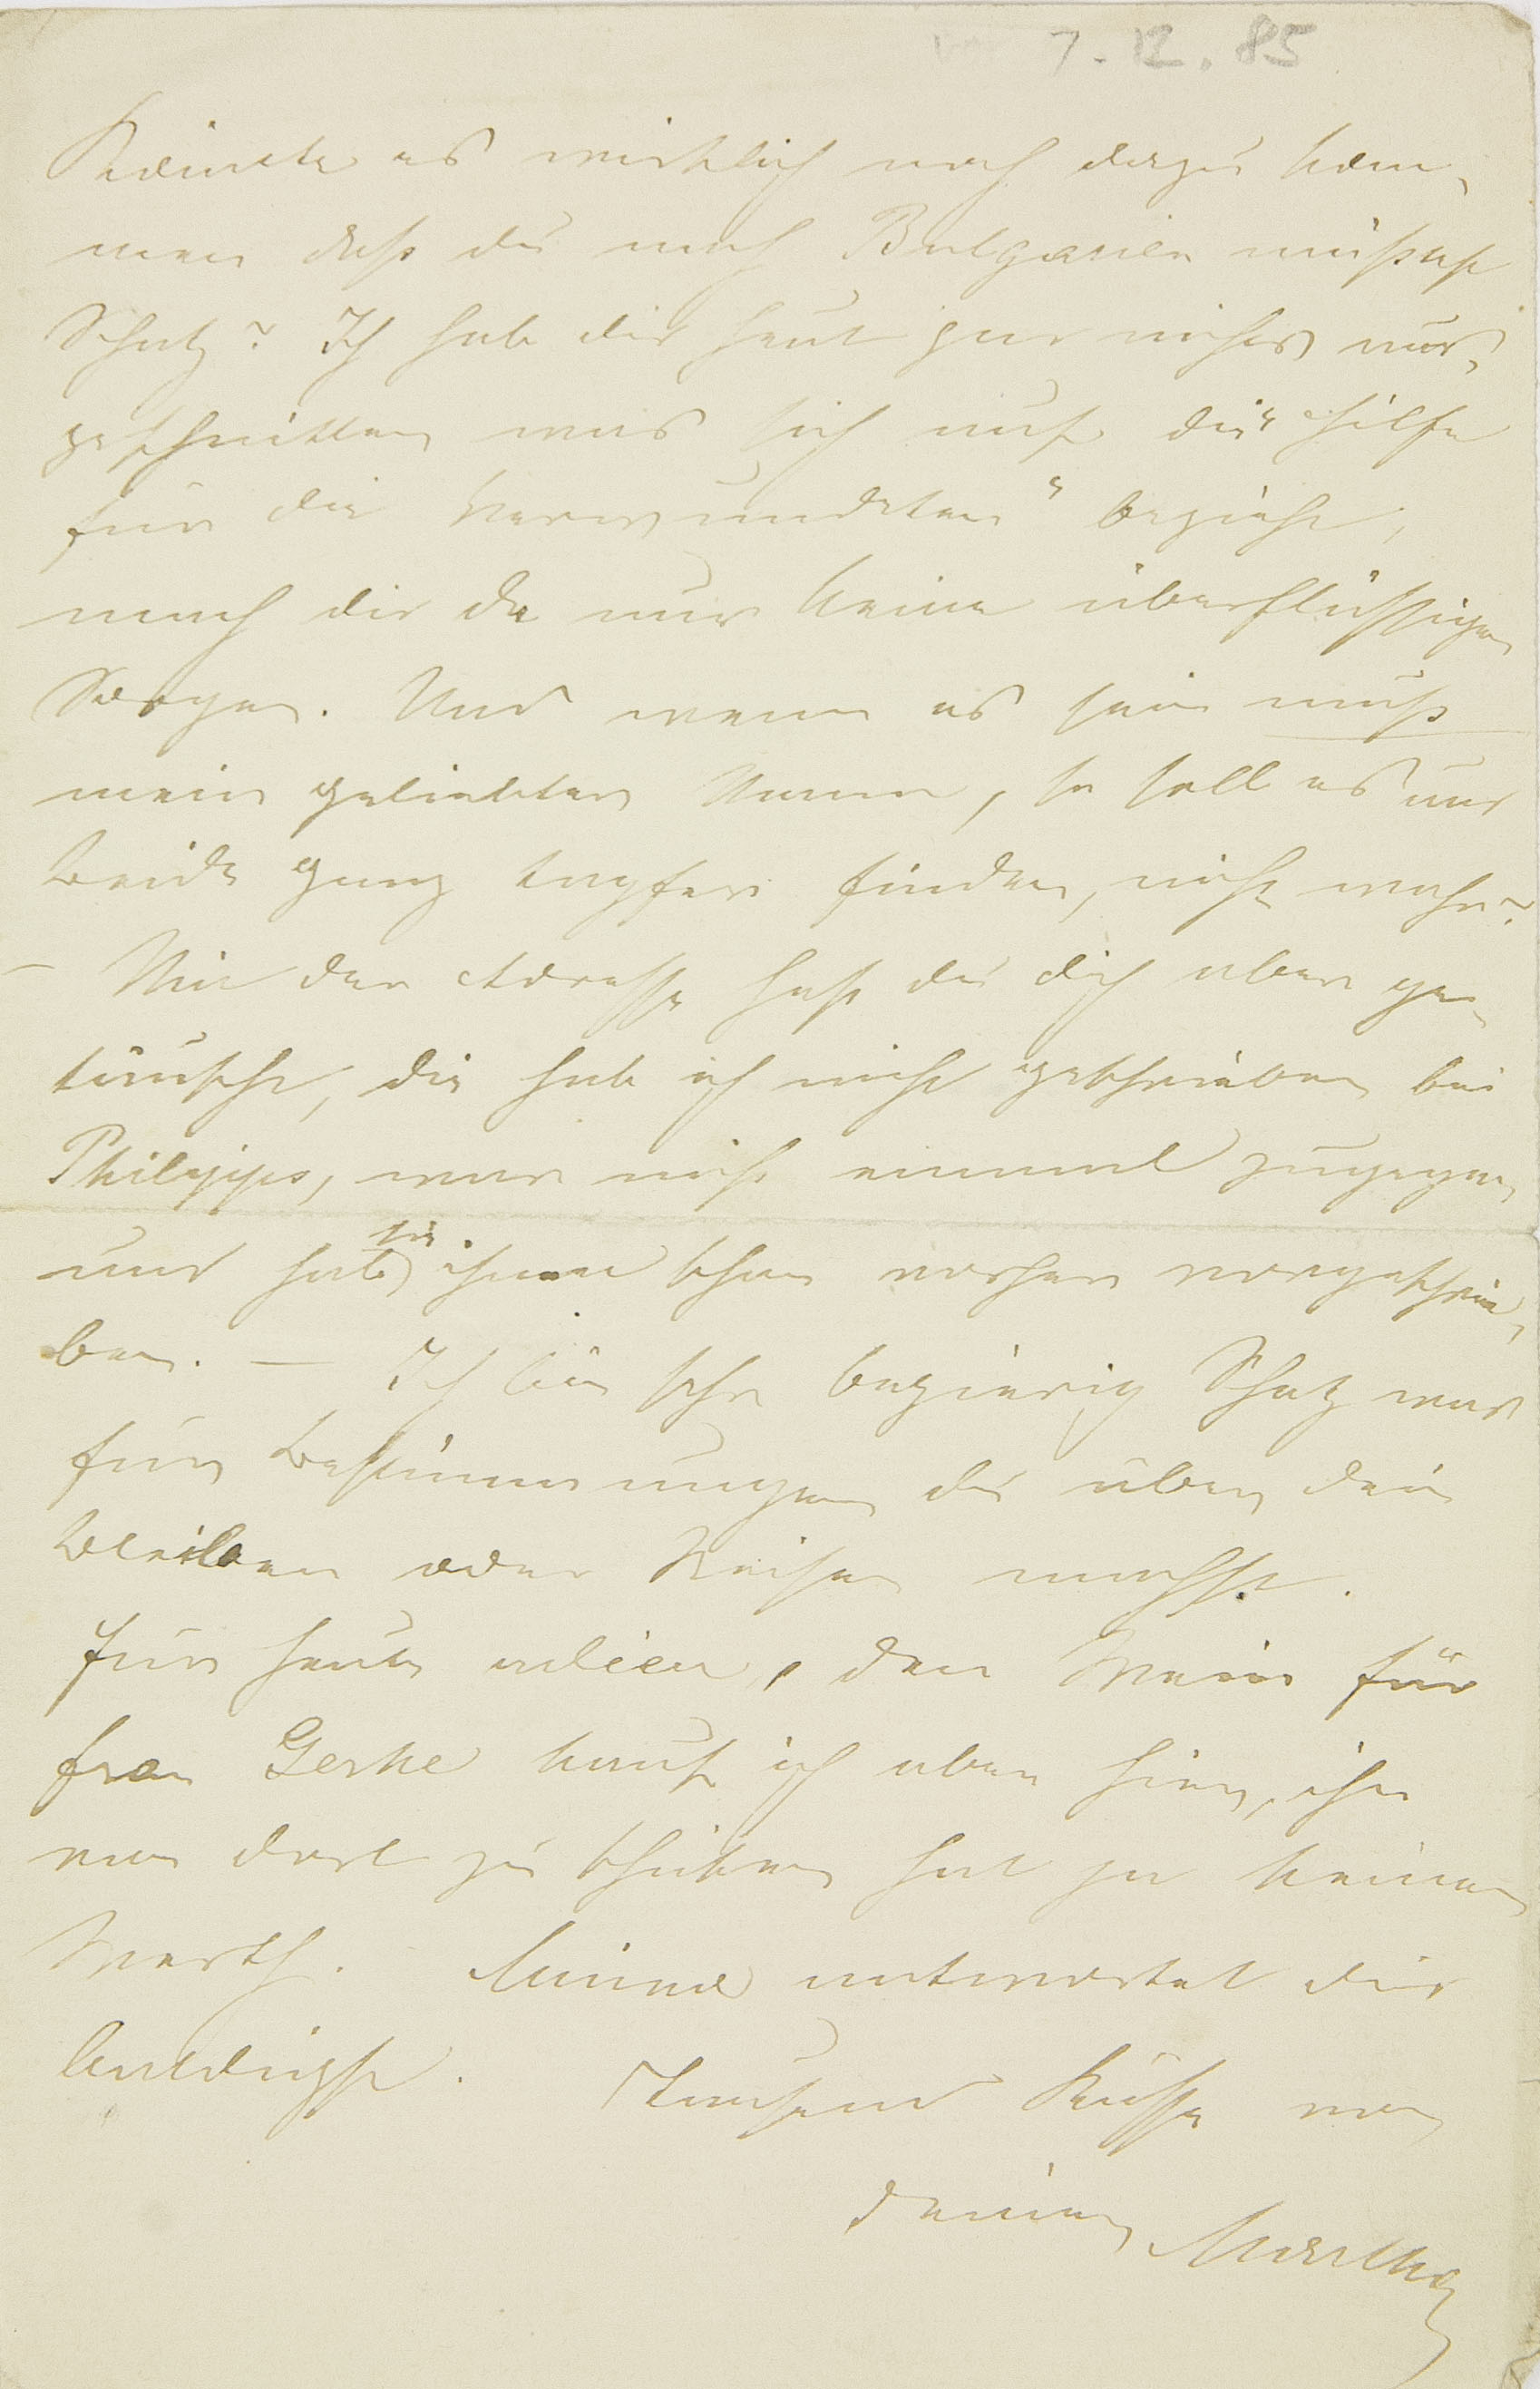 7.12.85
Könnte es wirklich noch dazu kom-
men daß du nach Bulgarien müßtest
Schatz? Ich hab dir heut gar nichts aus-
geschnitten was sich auf die „Hilfe
für die Verwundeten“ bezieht,
mach dir da nur keine überflüssigen
Sorgen. Und wenn es sein muß
mein geliebter Mann, so soll es uns
beide ganz tapfer finden, nicht wahr?
– Mit der Adresse hast du dich aber ge-
täuscht, die hab ich nicht geschrieben bei
Philipps, war nicht einmal zugegen
und hab sie ihnen schon vorher vorgeschrie-
ben. – Ich bin sehr begierig Schatz was
für Bestimmungen du über dein
Bleiben oder Reisen machst.
Für heute adieu, den Wein für
Frau Gerke kauf ich aber hier, ihn
von dort zu schicken hat ja keinen
Werth. Minna antwortet dir
baldigst. Tausend Küsse von
deiner Martha